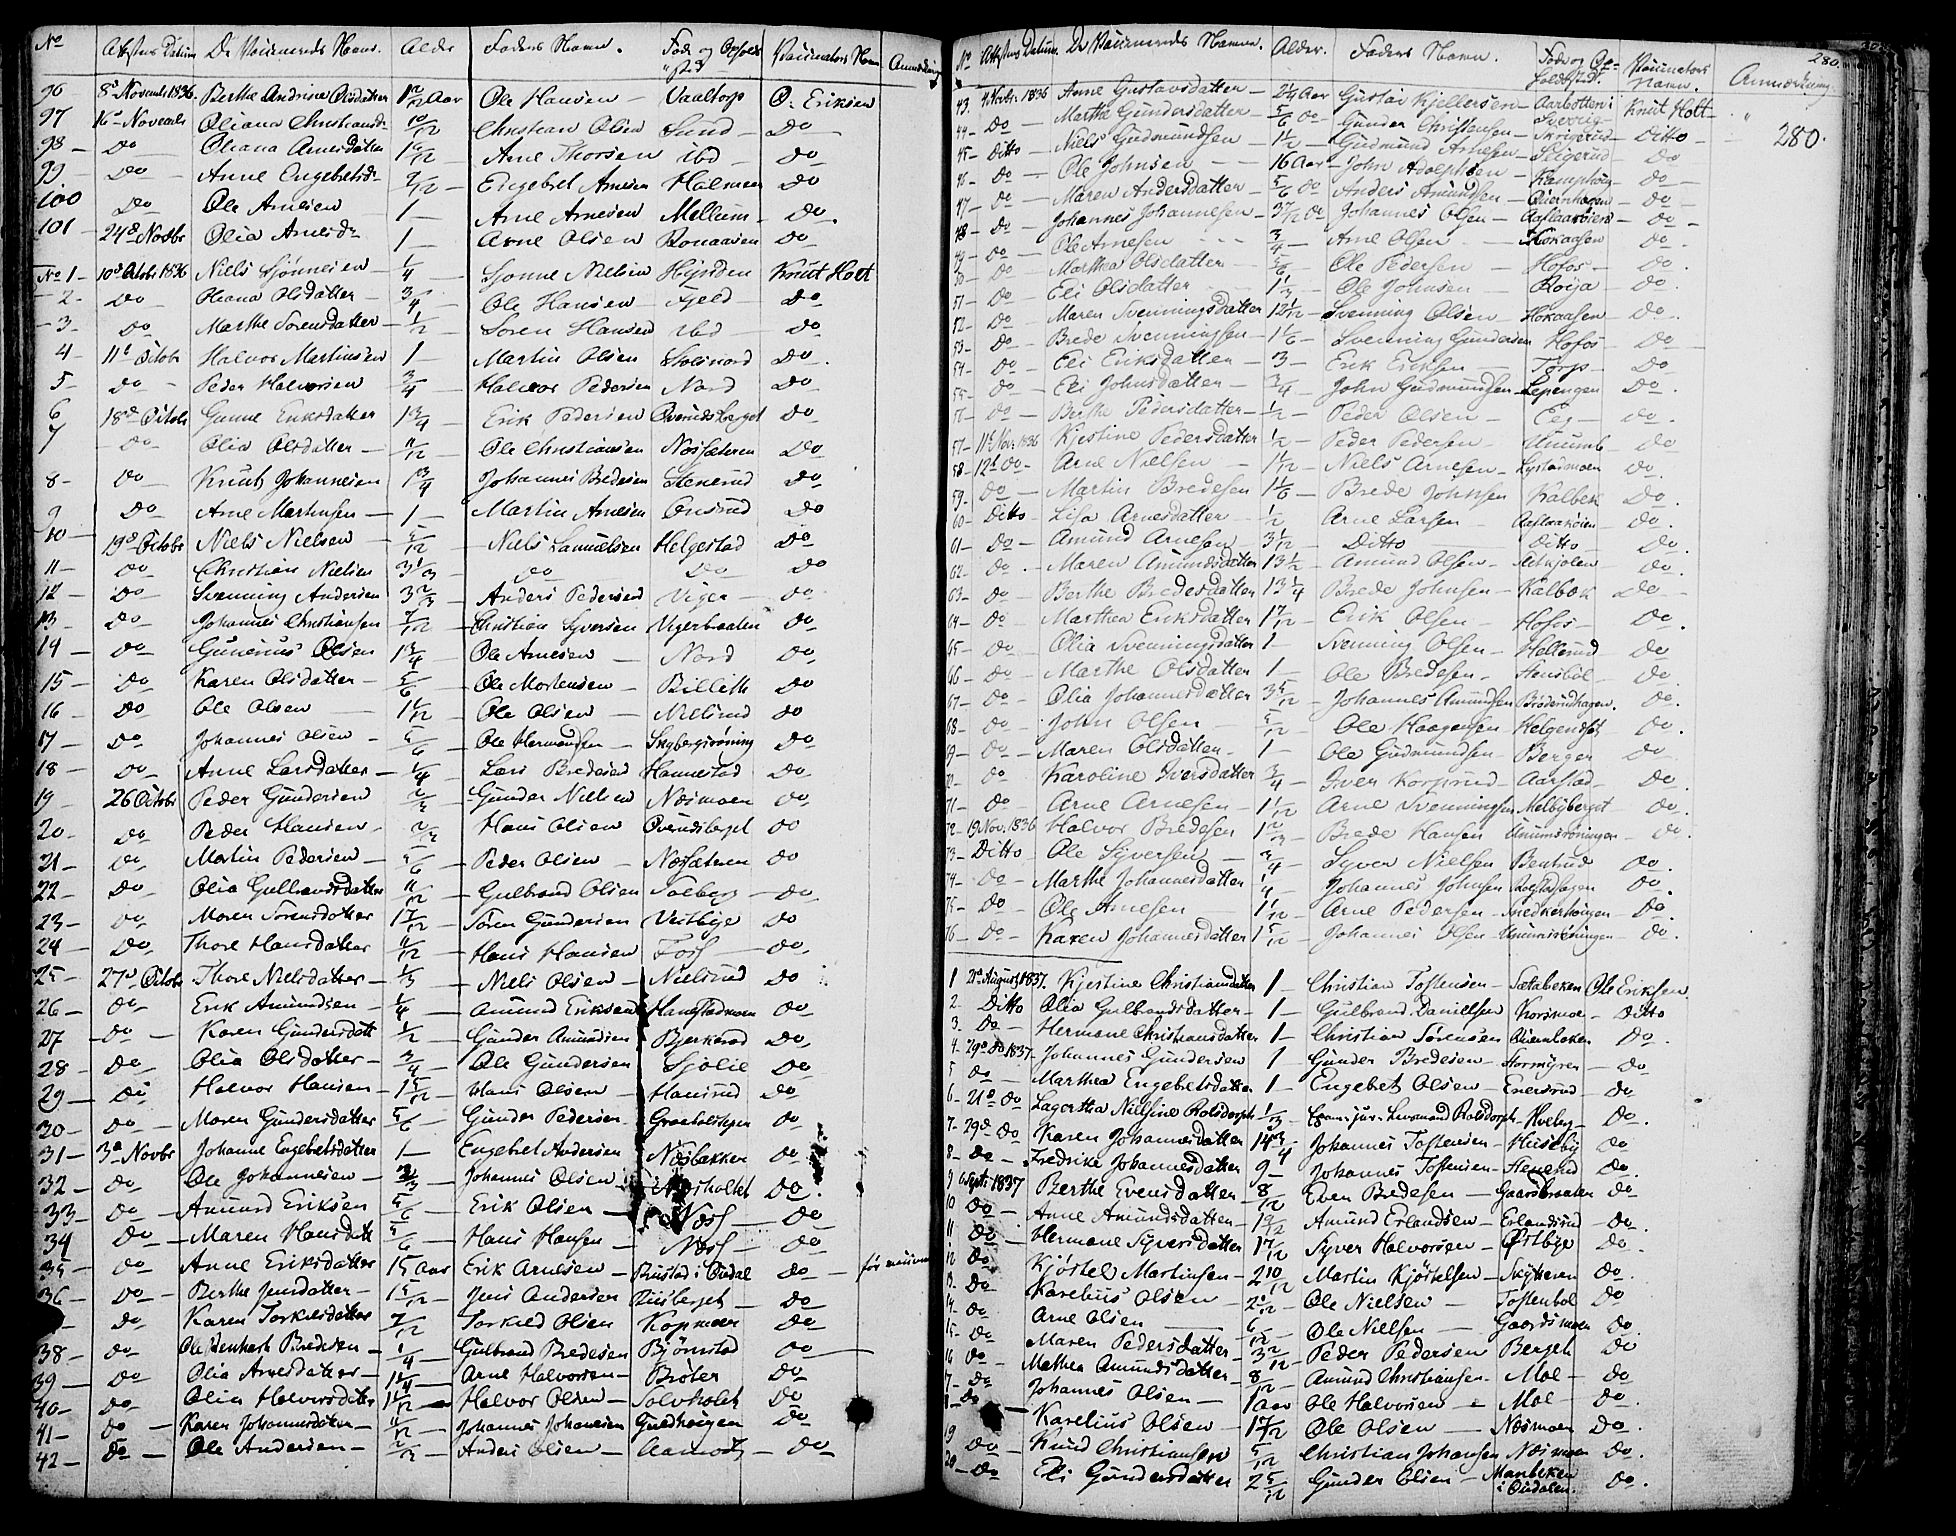 No Attestens Datum De Vaccineredes Navne. Alder Faders Navn. Føde og Opholds Sted Vaccinators Navn Anmærkning
96 8de Novemb 1836 Berthe Andrine Olsdatter 1 2/12 Aar Ole Hansen Vaaltorp O: Eriksen
97 16de Novemb Oliana Christiansd 10/12 Christian Olsen Sund Do
98 Do Oliana Arnesdatter Arne Thorsen ibd Do
99 Do Anne Engebretsd 7/12 Engebret Arnesen Holmen Do
100 Do Ole Arnesen 1 Arne Arnesen Mellum Do
101 24de Novbr Olia Arnesd 1 Arne Olsen Ronaasen Do
No 1 10de Octobr 1836 Niels Sjønnesen 1/4 Sjønne Nielsen Hejsden Knut Holt
2 Do Oleana Olsdatter 3/4 Ole Hansen Fjeld Do
3 Do Marthe Sørensdatter 1/2 Søren Hansen ibid Do
4 11te Octobr Halvor Martinsen 1 Martin Olsen Do
5 Do Peder Halvorsen 3/4 Halvor Pedersen Nord Do
6 18de Octobr Gunne Eriksdatter 1 3/4 Erik Pedersen Ovenudsberget Do
7 Do Olia Olsdatter 11/12 Ole Christiansen Næssæteren Do
8 Do Knut Johannesen 1 3/4 Johannes Bredesen Stenerud Do
9 Do Arne Martinsen 1 Martin Arnesen Onsrud Do
10 19de Octobr Niels Nielsen 5/12 Niels Samuelsen Helgestad Do
11 Do Christian Nielsen 3 1/3 Do Do Do
12 Do Svenning Andersen 3 2/3 Anders Pedersen Viger Do
13 Do Johannes Christiansen 7/12 Christian Syversen Vigerbraaten Do
14 Do Gunerius Olsen 1 3/4 Ole Arnesen Nord Do
15 Do Karen Olsdatter 5/6 Ole Mortensen Billith Do
16 Do Ole Olsen 1 1/12 Ole Olsen Nielsrud Do
17 Do Johannes Olsen 5/6 Ole Hermandsen Do
18 Do Anne Larsdatter 1/4 Lars Bredesen Hannestad Do
19 26 Octobr Peder Gundersen 2/3 Gunder Nielsen Næsmoen Do
20 Do Peder Hansen 2/3 Hans Olsen Ovenudsberget Do
21 Do Martin Pedersen 5/6 Peder Olsen Næssæteren Do
22 Do Olia Gulbrandsdatter 11/12 Gulbrand Olsen Solberg Do
23 Do Maren Sørensdatter 1 7/12 Søren Gundersen Vestbye Do
24 Do Thore Hansdatter 11/12 Hans Hansen Foss Do
25 27de Octobr Thore Nielsdatter 1/3 Niels Olsen Nielsrud Do
26 Do Erik Amundsen 1/4 Amund Eriksen Hanestadmoen Do
27 Do Karen Gundersdatt 1/2 Gunder Amundsen Bjerkerud Do
28 Do Olia Olsdatter 3/4 Ole Gundersen Sjolie Do
29 Do Halvor Hansen 1 5/12 Hans Olsen Hansrud Do
30 Do Maren Gundersdatter 5/6 Gunder Pedersen Graaholtsjen Do
31 3de Novbr Johanne Engebretsdatter 1 Engebret Andersen Næsbakken Do
32 Do Ole Johannesen 2/3 Johannes Olsen Næsholtet Do
33 Do Amund Eriksen 5/6 Erik Olsen Næss Do
34 Do Maren Hansdatt 5/6 Hans Hansen Næss Do
35 Do Anne Eriksdatter 15 Aar Erik Arnesen Bustad i Ourdal Do før
36 Do Berthe Jensdatter 1 5/12 Jens Andersen Riisberget Do
Do Karen Torkelsdatter 7/12 Torkild Olsen Kopmoen Do
38 Do Ole Bernhart Bredesen 1/4 Gulbrand Bredesen Bjørnstad Do
39 Do Olia Arnesdatter 1 1/4 Arne Halvorsen Brøter Do
40 Do Olia Halvorsdatter 1 1/12 Halvor Olsen Solvholdt Do
41 Do Karen Johannesdatter 11/12 Johannes Johannesen Gundhougen Do
42 Do Ole Andersen 2/3 Anders Olsen Aamodt Do
280.
No Attestens Datum. De Vaccineredes Navne. Alder. Faders Navn. Føde og Opholds Sted. Vaccinators Navn. Anmærkning.
280.
43. 4 Novbr. 1836 Anne Gustavsdatter 2 1/4 Aar Gustav Kjellersen Aarbotten i Sverrig Knut Holt
44 Do Marthe Gundersdatter 5/6 Do Gunder Christensen Skrigerud Do
45 Ditto Niels Gudmundsen 1 1/2 Gudmund Arnesen Seigerud Ditto
46 Do Ole Johnsen 16 Aar John Adolphsen Kamphoug Do
47 Do Maren Andersdatter 5/6 Do Anders Amundsen Qvernhagen Do
48 Do Johannes Johannesen 3 7/12 Do Johannes Olsen Aaslaakoien Do
49 Do Ole Arnesen 3/4 Arne Olsen Hokaasen Do
50 Do Marthea Olsdatter 5/6 Ole Pedersen Hofos Do
51 Do Eli Olsdatter 1 1/3 Ole Johnsen Roija Do
52 Do Maren Svenningsdatter 12 1/2 Svenning Olsen Hokaasen Do
53 Do Brede Svenningsen 1 1/6 Svenning Gundersen Hofos Do
54 Do Eli Eriksdatter 3 Erik Eriksen Torp Do
55 Do Eli Johnsdatter 3/4 John Gudmundsen Lepengen Do
56 Do Berthe Pedersdatter 1/2 Peder Olsen Eeg Do
57 11te Novr. 1836 Kjestine Pedersdatter 1/2 Peder Pedersen Unumb Do
58 12te Do Arne Nielsen 1 1/12 Niels Arnesen Lystadmoen Do
59 Do Martin Bredesen 1 1/6 Brede Johnsen Kalbek Do
60 Ditto Lisa Arnesdatter 1/2 Arne Larsen Aaslaakoien Do
61 Do Amund Arnesen 3 1/2 Ditto Ditto Do
62 Do Maren Amundsdatter 13 1/2 Amund Olsen Do
63 Do Berthe Bredesdatter 13 1/4 Brede Johnsen Kalbek Do
64 Do Marthea Eriksdatter 1 7/12 Erik Olsen Hofos Do
65 Do Olia Svenningsdatter 1 Svenning Olsen Hellerud Do
66 Do Marthe Olsdatter 1 Ole Bredesen Stensbøl Do
67 Do Olia Johannesdatter 3 5/12 Johannes Amundsen Broderudhagen Do
68 Do John Olsen 5/12 Ole Haagensen Helgendsst Do
69 Do Maren Olsdatter 1 Ole Gudmundsen Berger Do
70 Do Karoline Iversdatter 3/4 Iver Korpsrud Aarstad Do
71 Do Arne Arnesen 1 1/12 Arne Svenningsen Melbyberget Do
72 19 Nov. 1836 Halvor Bredesen 1 2/3 Brede Hansen Unumsrøningen Do
73 Ditto Ole Syversen 3/4 Syver Nielsen Bentrud Do
74 Do Marthe Johannesdatter 1/4 Johannes Johnsen Rolstadhagen Do
75 Do Ole Arnesen 1 1/12 Arne Pedersen Snedkerhougen Do
76 Do Karen Johannesdatter 1 5/12 Johannes Olsen Unumsrøningen Do
1 21de August 1837. Kjestine Christiansdatter 1 Christian Tostensen Sætabekken Ole Eriksen
2. Ditto Olia Gulbrandsdatter 1 Gulbrand Danielsen Korsmoe Ditto
3. Do Hermane Christiansdatter 1 Christian Sørensen Qvernbakken Do
4. 29de Do 1837. Johannes Gundersen 1 Gunder Bredesen Stormyren Do
5 Do Marthea Engebretsdatter 1 Engebret Olsen Enersrud Do
6 21de Do Lagertha Nielsine Rolsdorph 1/3 Exam: jur: Levmand Rolsdorph Hveberg Do
7 29de Do Karen Johannesdatter 14 3/4 Johannes Tostensen Huseby Do
8 Do Fredrike Johannesdatter 9 Johannes Tostensen Stenerud Do
9 6 Septr 1837 Berthe Evensdatter 8/12 Even Bredesen Gaardbraaten Do
10 Do Anne Amundsdatter 1 9/12 Amund Erlandsen Erlandsrud Do
11 Do Hermane Syversdatter 1 7/12 Syver Halvorsen Østbye Do
12 Do Kjøstel Martinsen 2 10/12 Martin Kjøstelsen Skytteren Do
13 Do Karelius Olsen 2 1/12 Ole Nielsen Tostenbøl Do
14 Do Arne Olsen 6/12 Ole Nielsen Gaardsmoen Do
15 Do Maren Pedersdatter 3 3/12 Peder Pedersen Bergeli Do
16 Do Mathea Amundsdatter 8/12 Amund Christiansen Moe Do
17 Do Johannes Olsen 1 Aar Ole Halvorsen Moe Do
18 Do Karelius Olsen 1 7/12 Ole Olsen Næsmoen Do
19 Do Knud Christiansen 5/12 Christian Johansen Næsmoen Do
20 Do Eli Gundersdatter 2 5/12 Gunder Olsen Manbekken i Ourdalen Do